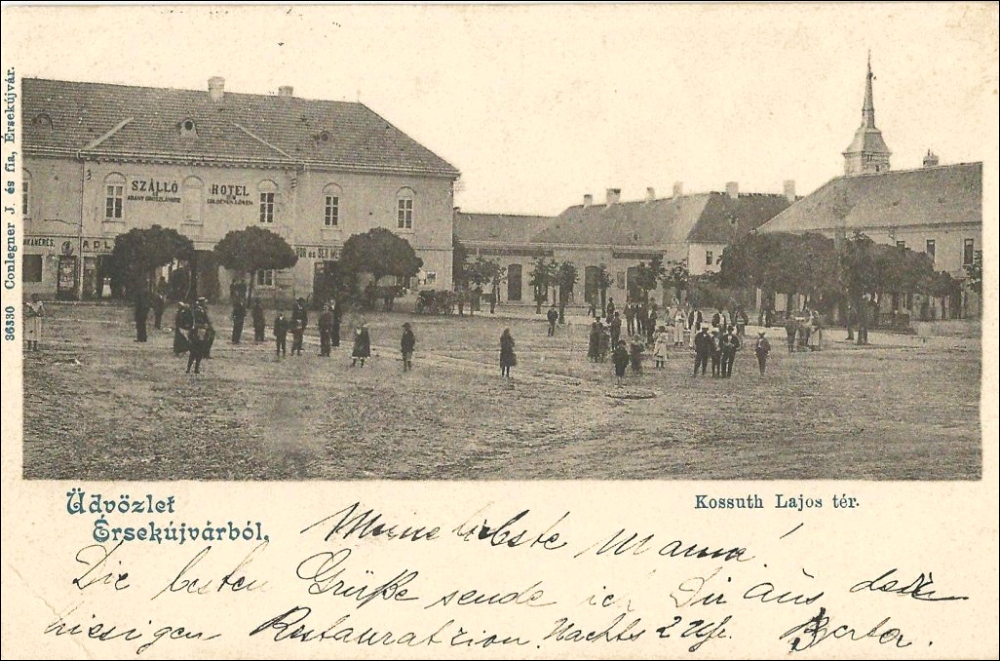 36330 Conlegner J. és fia, Érsekújvár.
SZÁLLÓ
HOTEL
ARANY OROSZLÁNHOZ
GOLDENEN LÖWEN
ADL
Üdvözlet
Érsekújvárból,
Kossuth Lajos tér.
Meine liebste Mama!
Die besten Grüße sende ich Dir aus
hiesigen Restauratzion. Nachts 2 Uhr. Berta.